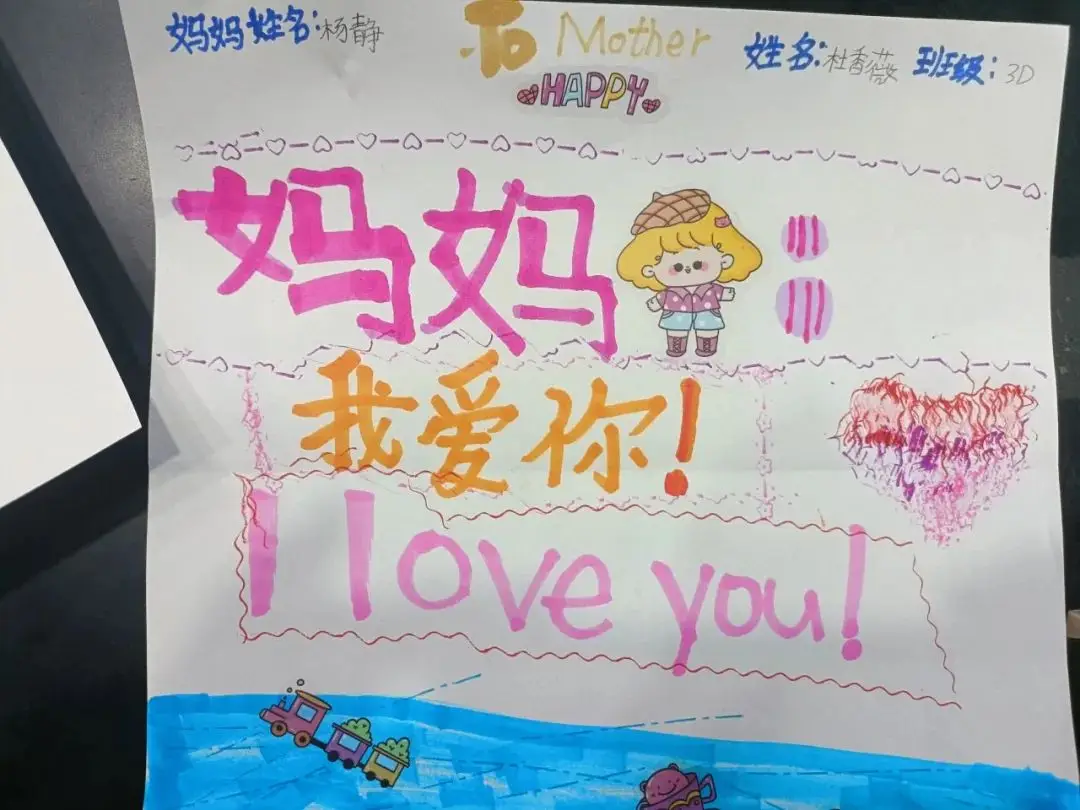 妈妈姓名:杨静
To Mother
姓名:杜香薇 班级:3D
HAPPY
妈妈:
我爱你!
I love you!